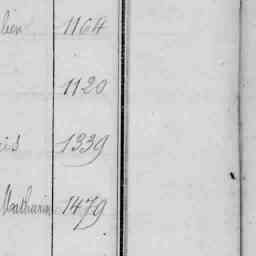 lien 1164
1120
is 1339
Mathurin 1479